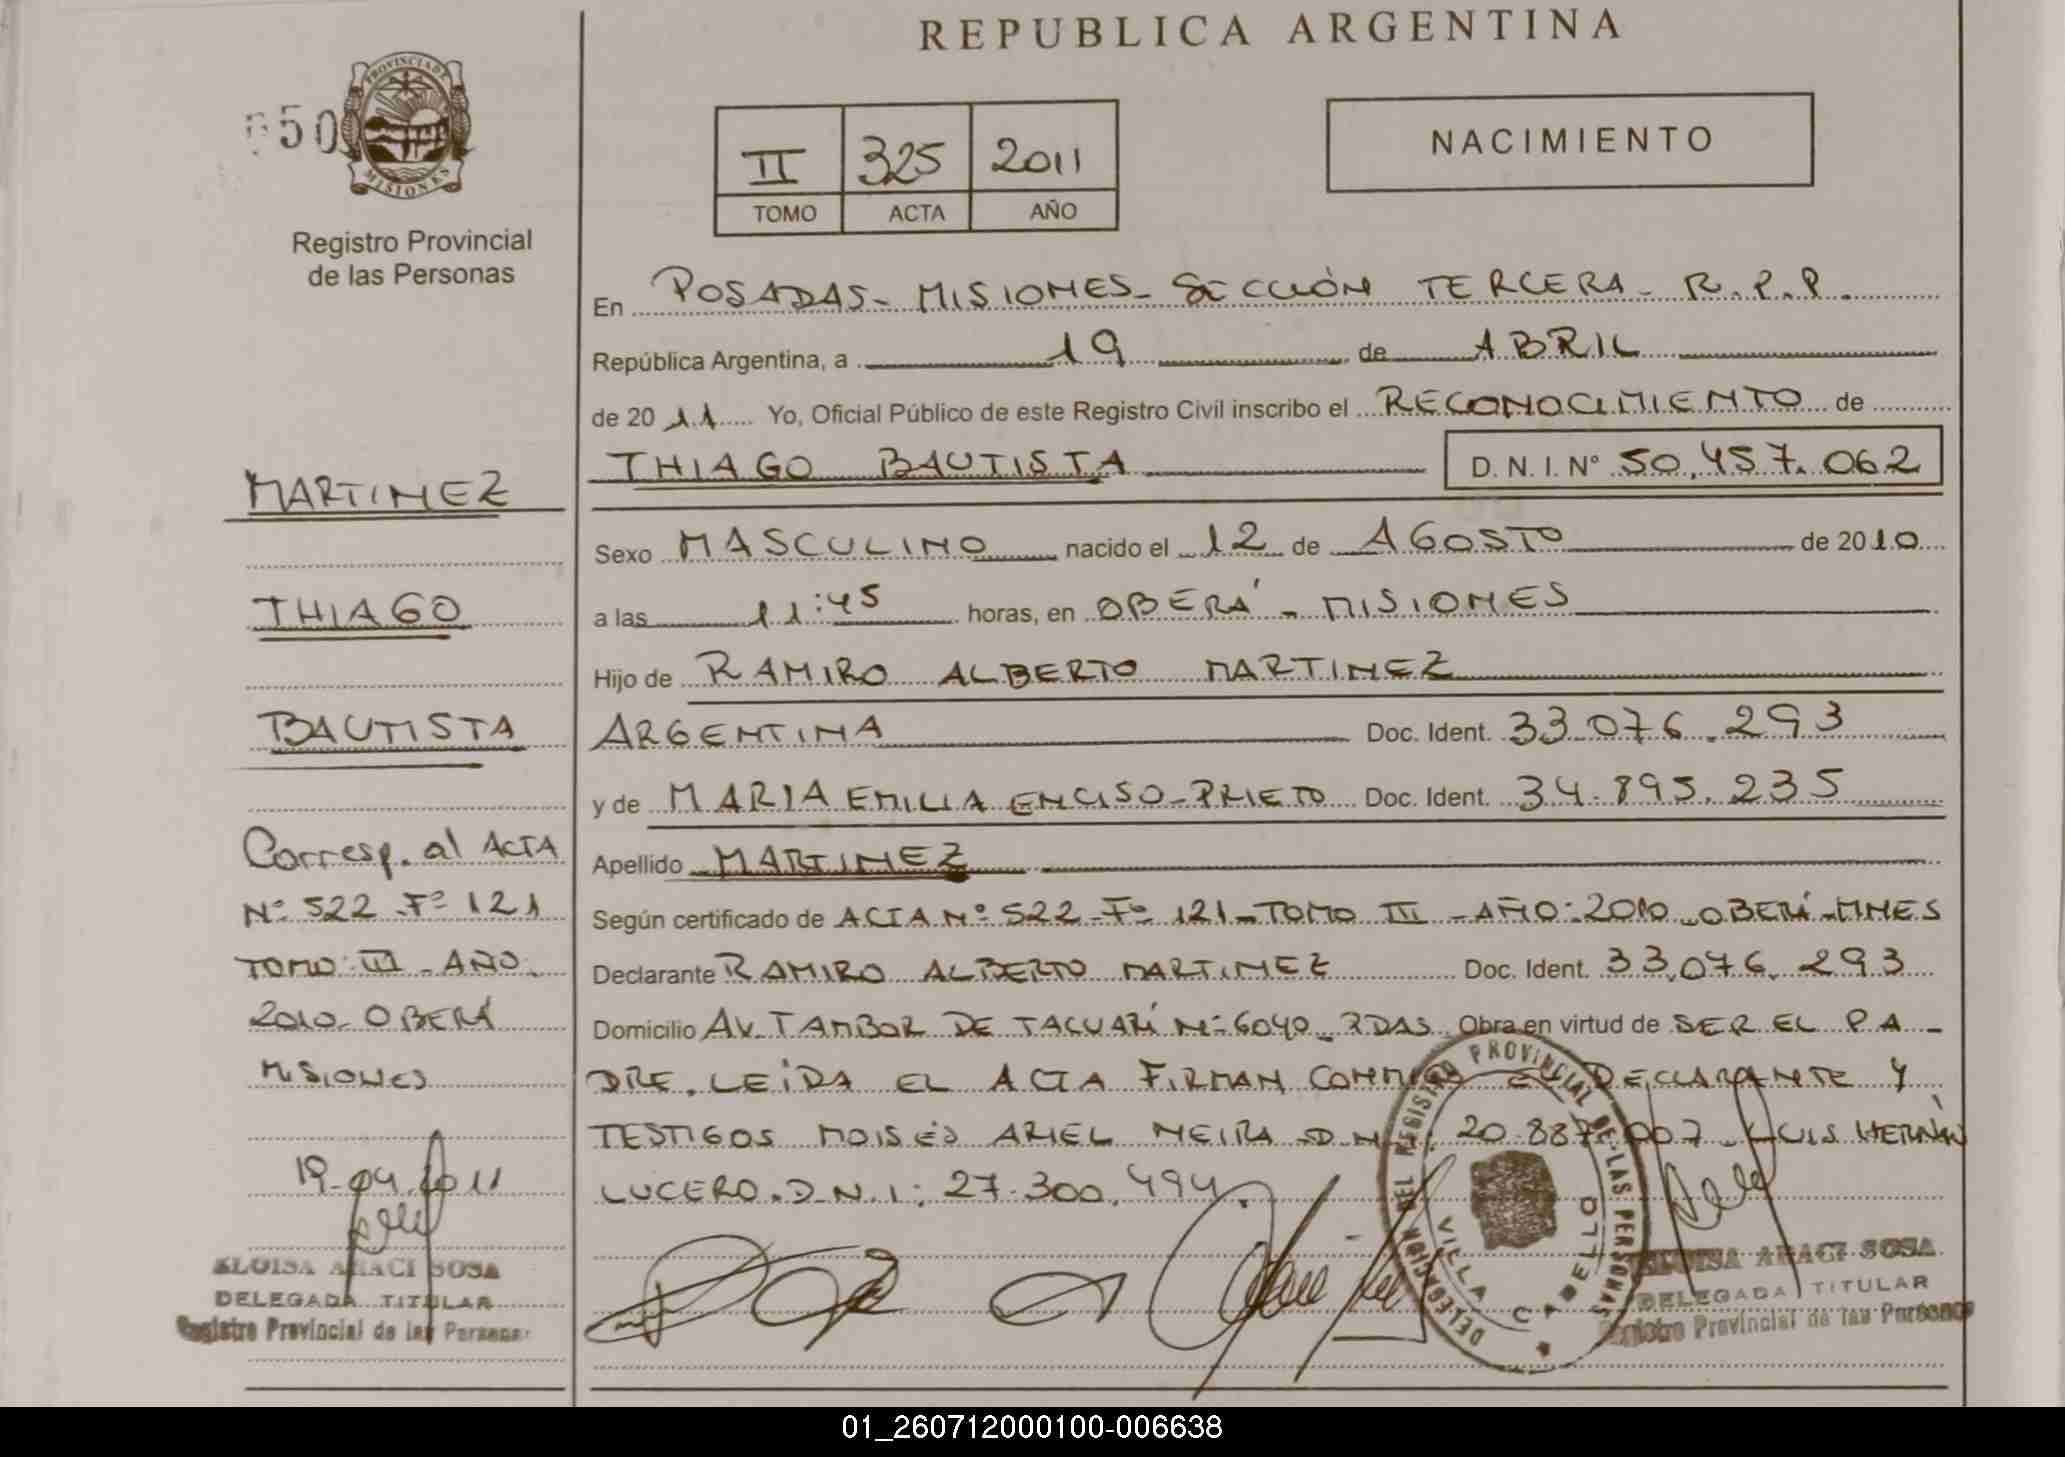 REPUBLICA ARGENTINA
50
PROVINCIA DE
MISIONES
Registro Provincial
de las Personas
II 325 2011
TOMO ACTA AÑO
NACIMIENTO
En POSADAS - MISIONES - SECCIÓN TERCERA - R.P.P.
República Argentina, a 19 de ABRIL
de 2011 Yo, Oficial Público de este Registro Civil inscribo el RECONOCIMIENTO de
THIAGO BAUTISTA D. N. I. N° 50.457.062
Sexo MASCULINO nacido el 12 de AGOSTO de 2010
a las 11:45 horas, en OBERÁ - MISIONES
Hijo de RAMIRO ALBERTO MARTINEZ
ARGENTINA Doc. Ident. 33.076.293
y de MARIA EMILIA ENCISO-PRIETO Doc. Ident. 34.895.235
Apellido MARTINEZ
Según certificado de ACTA Nº 522 - Fº 121 - TOMO III - AÑO: 2010 - OBERÁ - MNES
Declarante RAMIRO ALBERTO MARTINEZ Doc. Ident. 33.076.293
Domicilio AV. TAMBOR DE TACUARÍ Nº 6040 - PDAS. Obra en virtud de SER EL PA-
DRE. LEIDA EL ACTA FIRMAN CONMIGO EL DECLARANTE Y
TESTIGOS MOISÉS ARIEL NEIRA D.N.I: 20.887.007 - LUIS HERNÁN
LUCERO. D.N.I: 27.300.494.
MARTINEZ
THIAGO
BAUTISTA
Corresp. al ACTA
Nº 522 - Fº 121
TOMO: III - AÑO:
2010 - OBERÁ
MISIONES
19-04-2011
ELOISA ARACI SOSA
DELEGADA TITULAR
Registro Provincial de las Personas
DELEGACION DEL REGISTRO PROVINCIAL DE LAS PERSONAS
VILLA CABELLO
ELOISA ARACI SOSA
DELEGADA TITULAR
Registro Provincial de las Personas
01_260712000100-006638